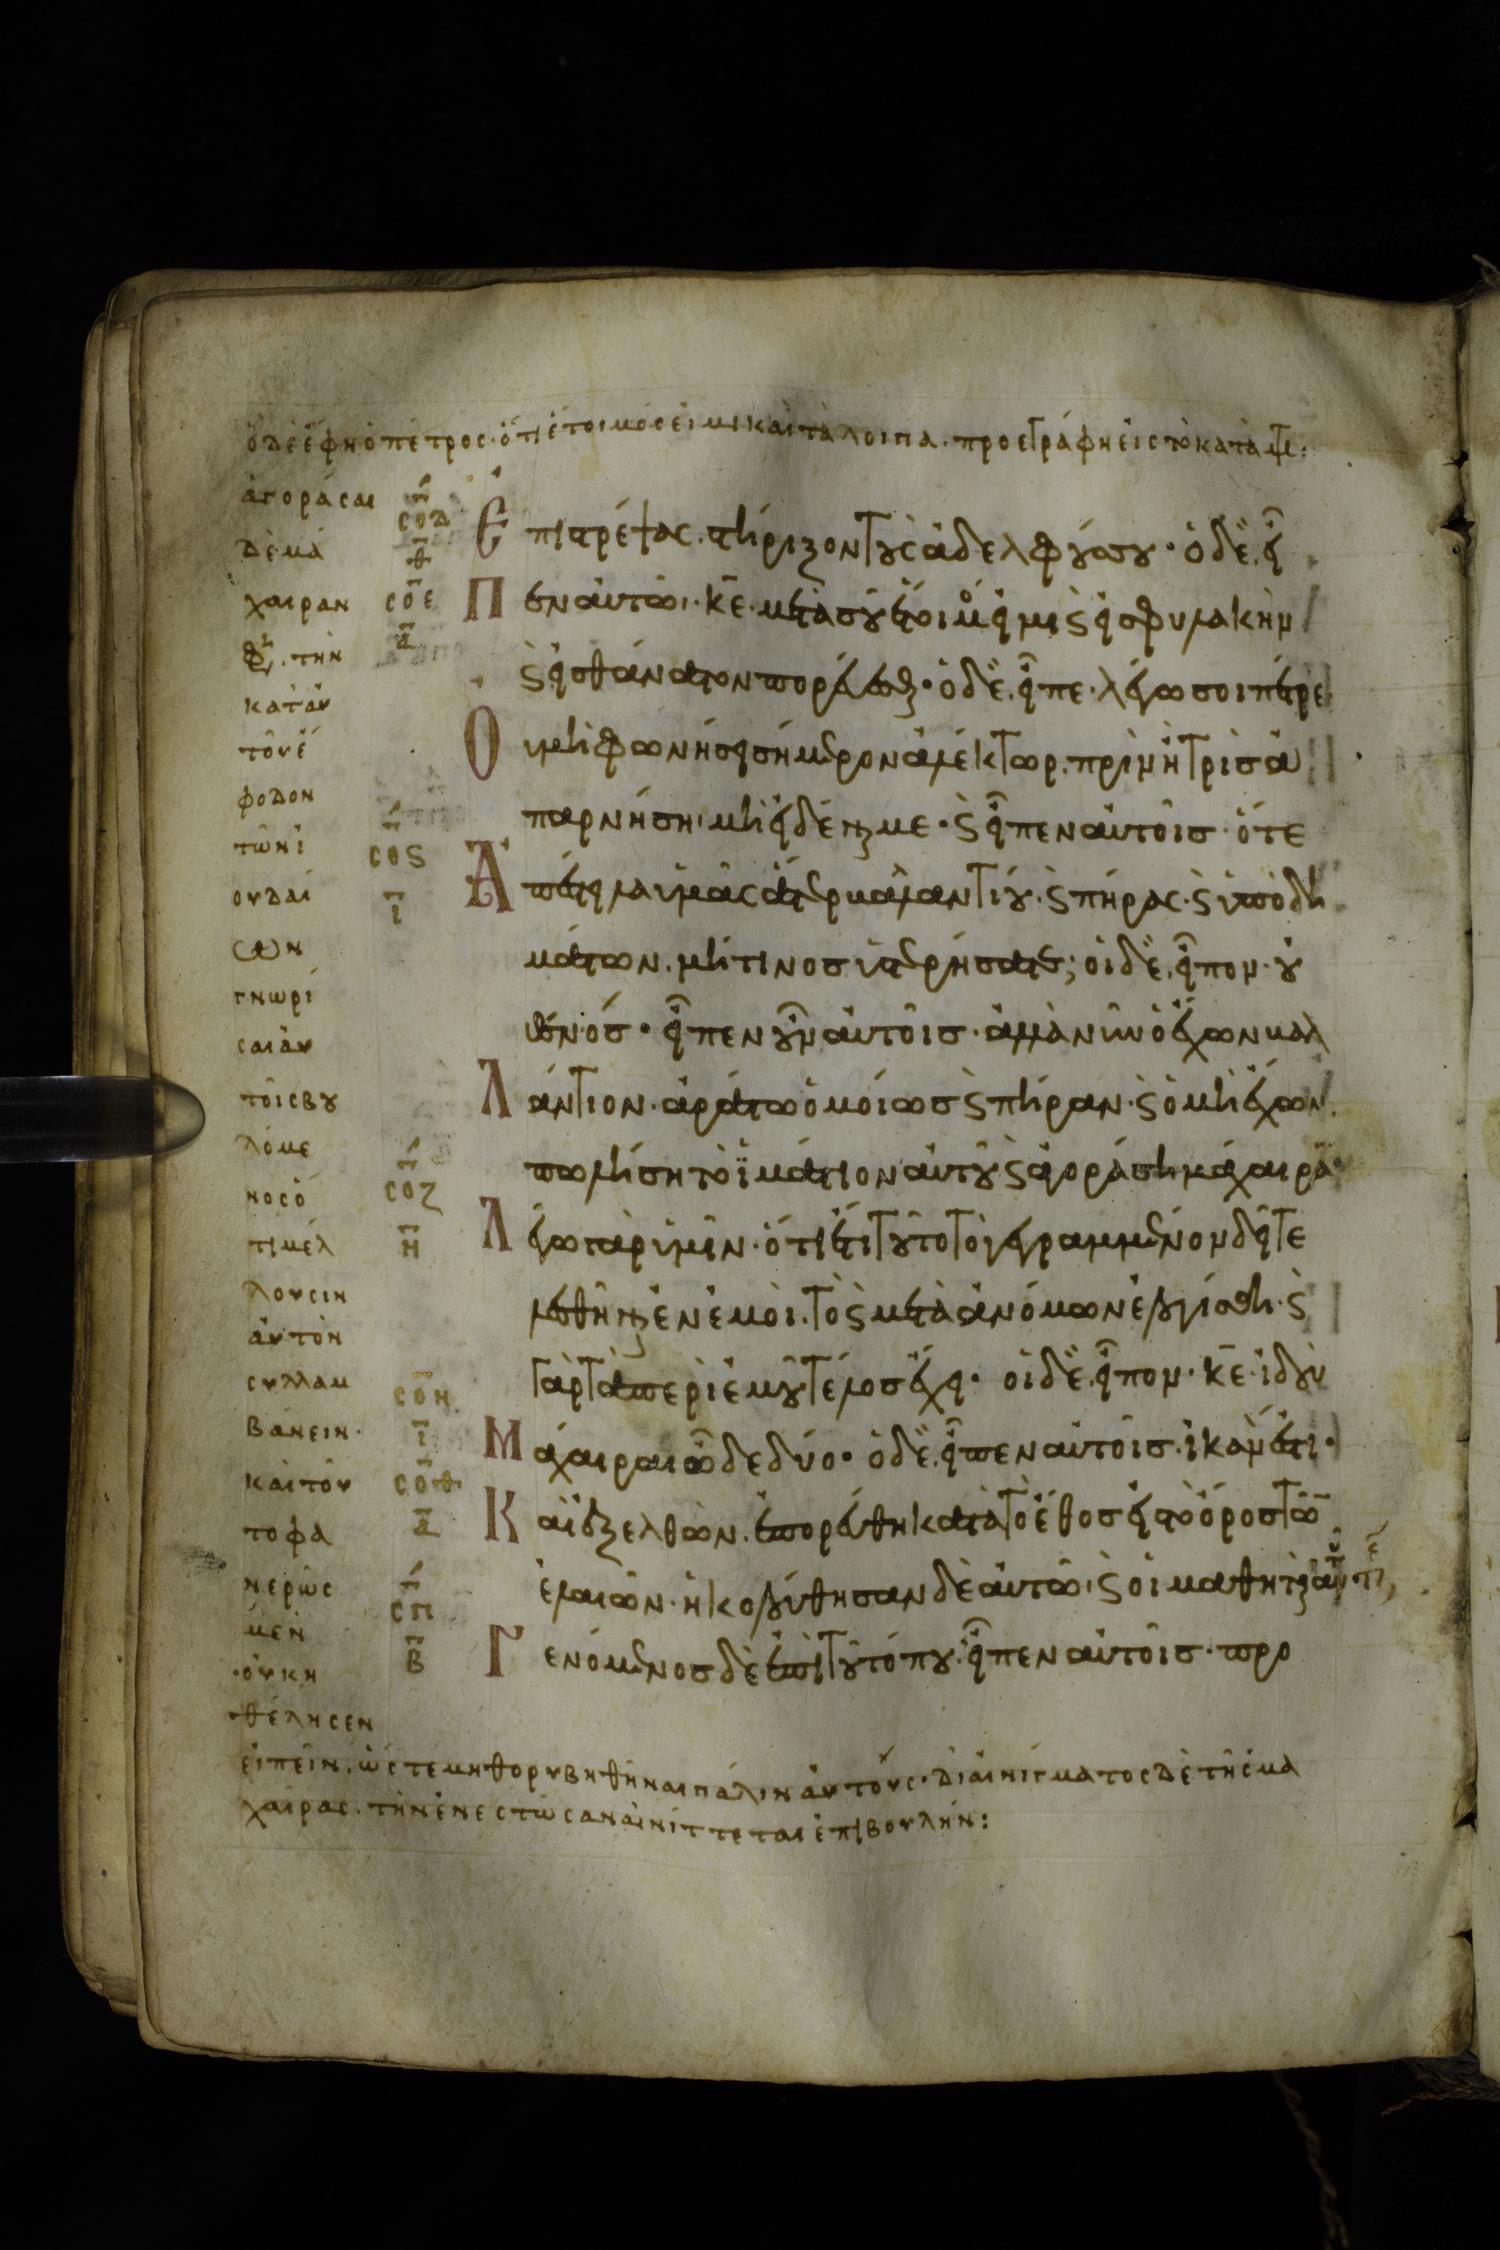 ὁ δὲ ἔφη ὁ πέτρος· ὅτι ἕτοιμός εἰμι καὶ τὰ λοιπὰ. προεγράφη εἰς τὸ κατὰ
ἀγοράσαι
δὲ μά
χαιραν
τὴν
κατ' αυ
τοῦ ἔ
φοδον
τῶν ἰ
ουδαί
ων
γνωρί
σαι αυ
τοῖς βου
λόμε
νος ὁ
τι μέλ
λουσιν
αὐτὸν
συλλαμ
βάνειν·
καὶ τοῦ
το φα
νερῶς
μὲν
οὐκ ἠ
θέλησεν
εἰπεῖν. ὥστε μὴ θορυβηθῆναι πάλιν αὐτούς· δι' αἰνίγματος δὲ τῆς μα
χαίρας. τὴν ἐνεστῶσαν αἰνίττεται ἐπιβουλήν:
σοδ
θ
σοε
α
σος
ι
σοζ
η
σοη
ι
σοθ
α
σπ
β
Ἐπιστρέψας. στήριξον τοὺς ἀδελφούς σου· ὁ δὲ εἶ
Πεν αὐτῶ· κε μετὰ σοῦ ἕτοιμός εἰμι ϗ εἰς φυλακὴν
ϗ εἰς θάνατον πορεύεσθαι· ὁ δὲ εἶπε· λέγω σοι πέτρε
Οὐ μὴ φωνήσει σήμερον ἀλέκτωρ. πρὶν ἢ τρὶς ἀ
παρνήση μὴ εἰδέναι με· ϗ εἶπεν αὐτοῖς· ὅτε
Ἀπέστειλα ὑμᾶς ἄτερ βαλαντίου· ϗ πήρας· ϗ ὑποδη
μάτων. μή τινος ὑστερήσατε; οἱ δὲ εἶπον· οὐ
θενός· εἶπεν οὖν αὐτοῖς· ἀλλὰ νῦν ὁ ἔχων βαλ
Λάντιον· ἀράτω ὁμοίως ϗ πήραν· ϗ ὁ μὴ ἔχων
πωλήση τὸ ἱμάτιον αὐτοῦ ϗ ἀγοράση μάχαιρα·
Λέγω γὰρ ὑμῖν· ὅτι ἔτι τοῦτο τὸ γεγραμμένον δεῖ τε
λεσθῆναι ἐν ἐμοὶ. τὸ ϗ μετὰ ἀνόμων ἐλογίσθη· ϗ
γὰρ τὰ περὶ ἐμοῦ τέλος ἔχει· οἱ δὲ εἶπον· κε ἰδοὺ
Μάχαιραι ὧδε δύο· ὁ δὲ εἶπεν αὐτοῖς· ἱκανόν ἐστι·
Καὶ ἐξελθὼν. ἐπορεύθη κατὰ τὸ ἔθος εἰς τὸ ὄρος τῶν
ἐλαιῶν· ἠκολούθησαν δὲ αὐτῶ· ϗ οἱ μαθηταὶ αὐτοῦ
Γενόμενος δὲ ἐπὶ τοῦ τόπου· εἶπεν αὐτοῖς· προ